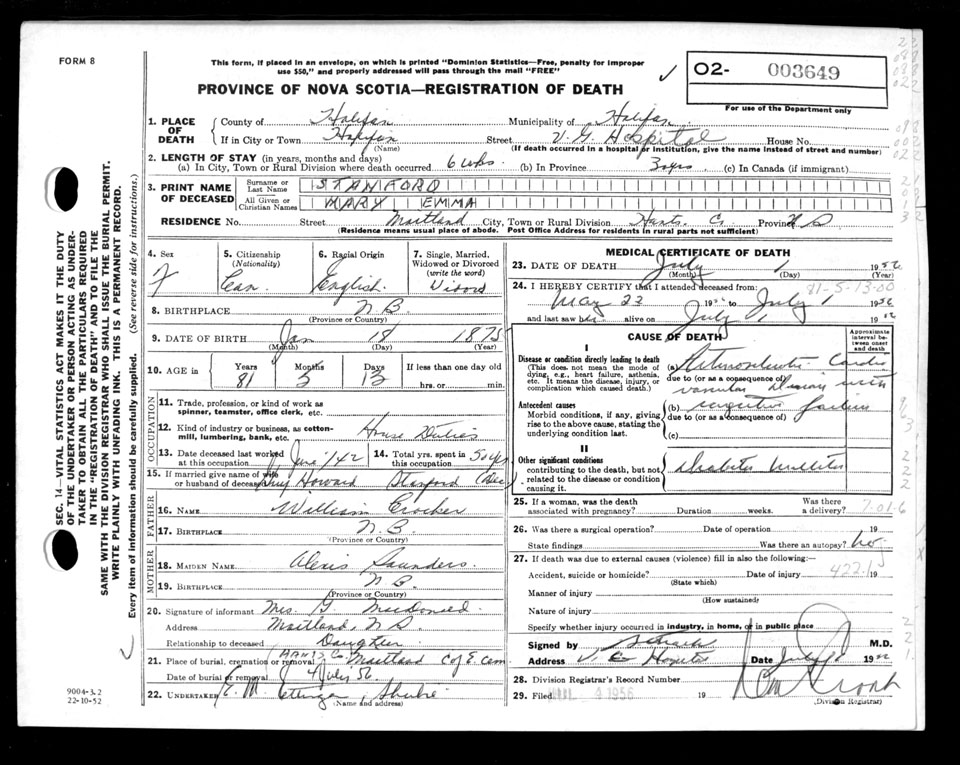 FORM 8
This form, if placed in an envelope, on which is printed "Dominion Statistics—Free, penalty for improper
use $50," and properly addressed will pass through the mail "FREE"
O2- 003649
For use of the Department only
PROVINCE OF NOVA SCOTIA—REGISTRATION OF DEATH
SEC. 14—VITAL STATISTICS ACT MAKES IT THE DUTY
OF THE UNDERTAKER OR PERSON ACTING AS UNDER-
TAKER TO OBTAIN ALL THE PARTICULARS REQUIRED
IN THE "REGISTRATION OF DEATH" AND TO FILE THE
SAME WITH THE DIVISION REGISTRAR WHO SHALL ISSUE THE BURIAL PERMIT.
WRITE PLAINLY WITH UNFADING INK. THIS IS A PERMANENT RECORD.
Every item of information should be carefully supplied. (See reverse side for instructions.)
1. PLACE OF DEATH
County of Halifax Municipality of Halifax
If in City or Town Halifax Street V. G. Hospital House No.
(Name) (If death occurred in a hospital or institution, give the name instead of street and number)
2. LENGTH OF STAY (in years, months and days)
(a) In City, Town or Rural Division where death occurred 6 wks. (b) In Province 3 yrs (c) In Canada (if immigrant)
3. PRINT NAME OF DECEASED
Surname or Last Name STANFORD
All Given or Christian Names MARY EMMA
RESIDENCE No. Street Maitland City, Town or Rural Division Hants Co. Province N S
(Residence means usual place of abode. Post Office Address for residents in rural parts not sufficient)
4. Sex
F
5. Citizenship
(Nationality)
Can.
6. Racial Origin
English
7. Single, Married,
Widowed or Divorced
(write the word)
Widow
8. BIRTHPLACE N B
(Province or Country)
9. DATE OF BIRTH Jan 18 1875
(Month) (Day) (Year)
10. AGE in
Years Months Days If less than one day old
81 5 13 hrs. or min.
OCCUPATION
11. Trade, profession, or kind of work as
spinner, teamster, office clerk, etc.
12. Kind of industry or business, as cotten-
mill, lumbering, bank, etc. House Duties
13. Date deceased last worked
at this occupation June '42
14. Total yrs. spent in
this occupation 50 yrs
15. If married give name of wife
or husband of deceased Howard Stanford (Dec)
FATHER
16. NAME William Crocker
17. BIRTHPLACE N B
(Province or Country)
MOTHER
18. MAIDEN NAME Alexis Saunders
19. BIRTHPLACE N B
(Province or Country)
20. Signature of informant Mrs. G MacDonald
Address Maitland, N S
Relationship to deceased Daughter
21. Place of burial, cremation or removal HANTS Co. Maitland C of E. Cem
Date of burial or removal 4 July 56
22. UNDERTAKER E. M. Ettinger, Shubie
(Name and address)
9004-3.2
22-10-52
MEDICAL CERTIFICATE OF DEATH
23. DATE OF DEATH July 1 1956
(Month) (Day) (Year)
24. I HEREBY CERTIFY that I attended deceased from: 81-5-13-00
May 23 1956 to July 1 1956
and last saw her alive on July 1 1956
CAUSE OF DEATH
Approximate
interval be-
tween onset
and death
I
Disease or condition directly leading to death
(This does not mean the mode of
dying, e.g., heart failure, asthenia,
etc. It means the disease, injury, or
complication which caused death.)
(a) Arteriosclerotic Cardio
due to (or as a consequence of)
vascular Disease with
Antecedent causes
Morbid conditions, if any, giving
rise to the above cause, stating the
underlying condition last.
(b) congestive failure
due to (or as a consequence of)
(c)
II
Other significant conditions
contributing to the death, but not
related to the disease or condition
causing it.
Diabetes Mellitus
25. If a woman, was the death
associated with pregnancy? Duration weeks. Was there
a delivery? 7-01-6
26. Was there a surgical operation? Date of operation 19
State findings Was there an autopsy? No
27. If death was due to external causes (violence) fill in also the following:—
Accident, suicide or homicide? Date of injury 422.1 19
(State which)
Manner of injury
(How sustained)
Nature of injury
Specify whether injury occurred in industry, in home, or in public place
Signed by M.D.
Address V G Hospital Date July 19
28. Division Registrar's Record Number
29. Filed JUL 4 1956 19
(Division Registrar)